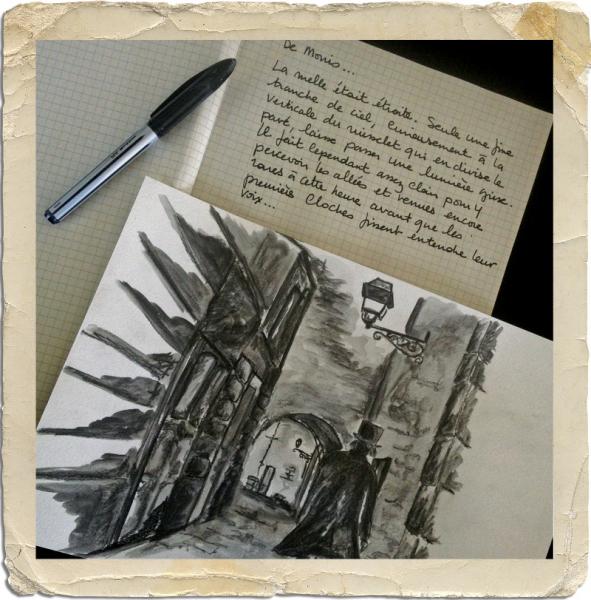 De Monio...
La ruelle était étroite. Seule une fine
tranche de ciel, curieusement à la
verticale du ruisselet qui en divise le
pavé, laisse passer une lumière grise.
Il fait cependant assez clair pour y
percevoir les allées et venues encore
rares à cette heure avant que les
premières Cloches fissent entendre leur
voix...